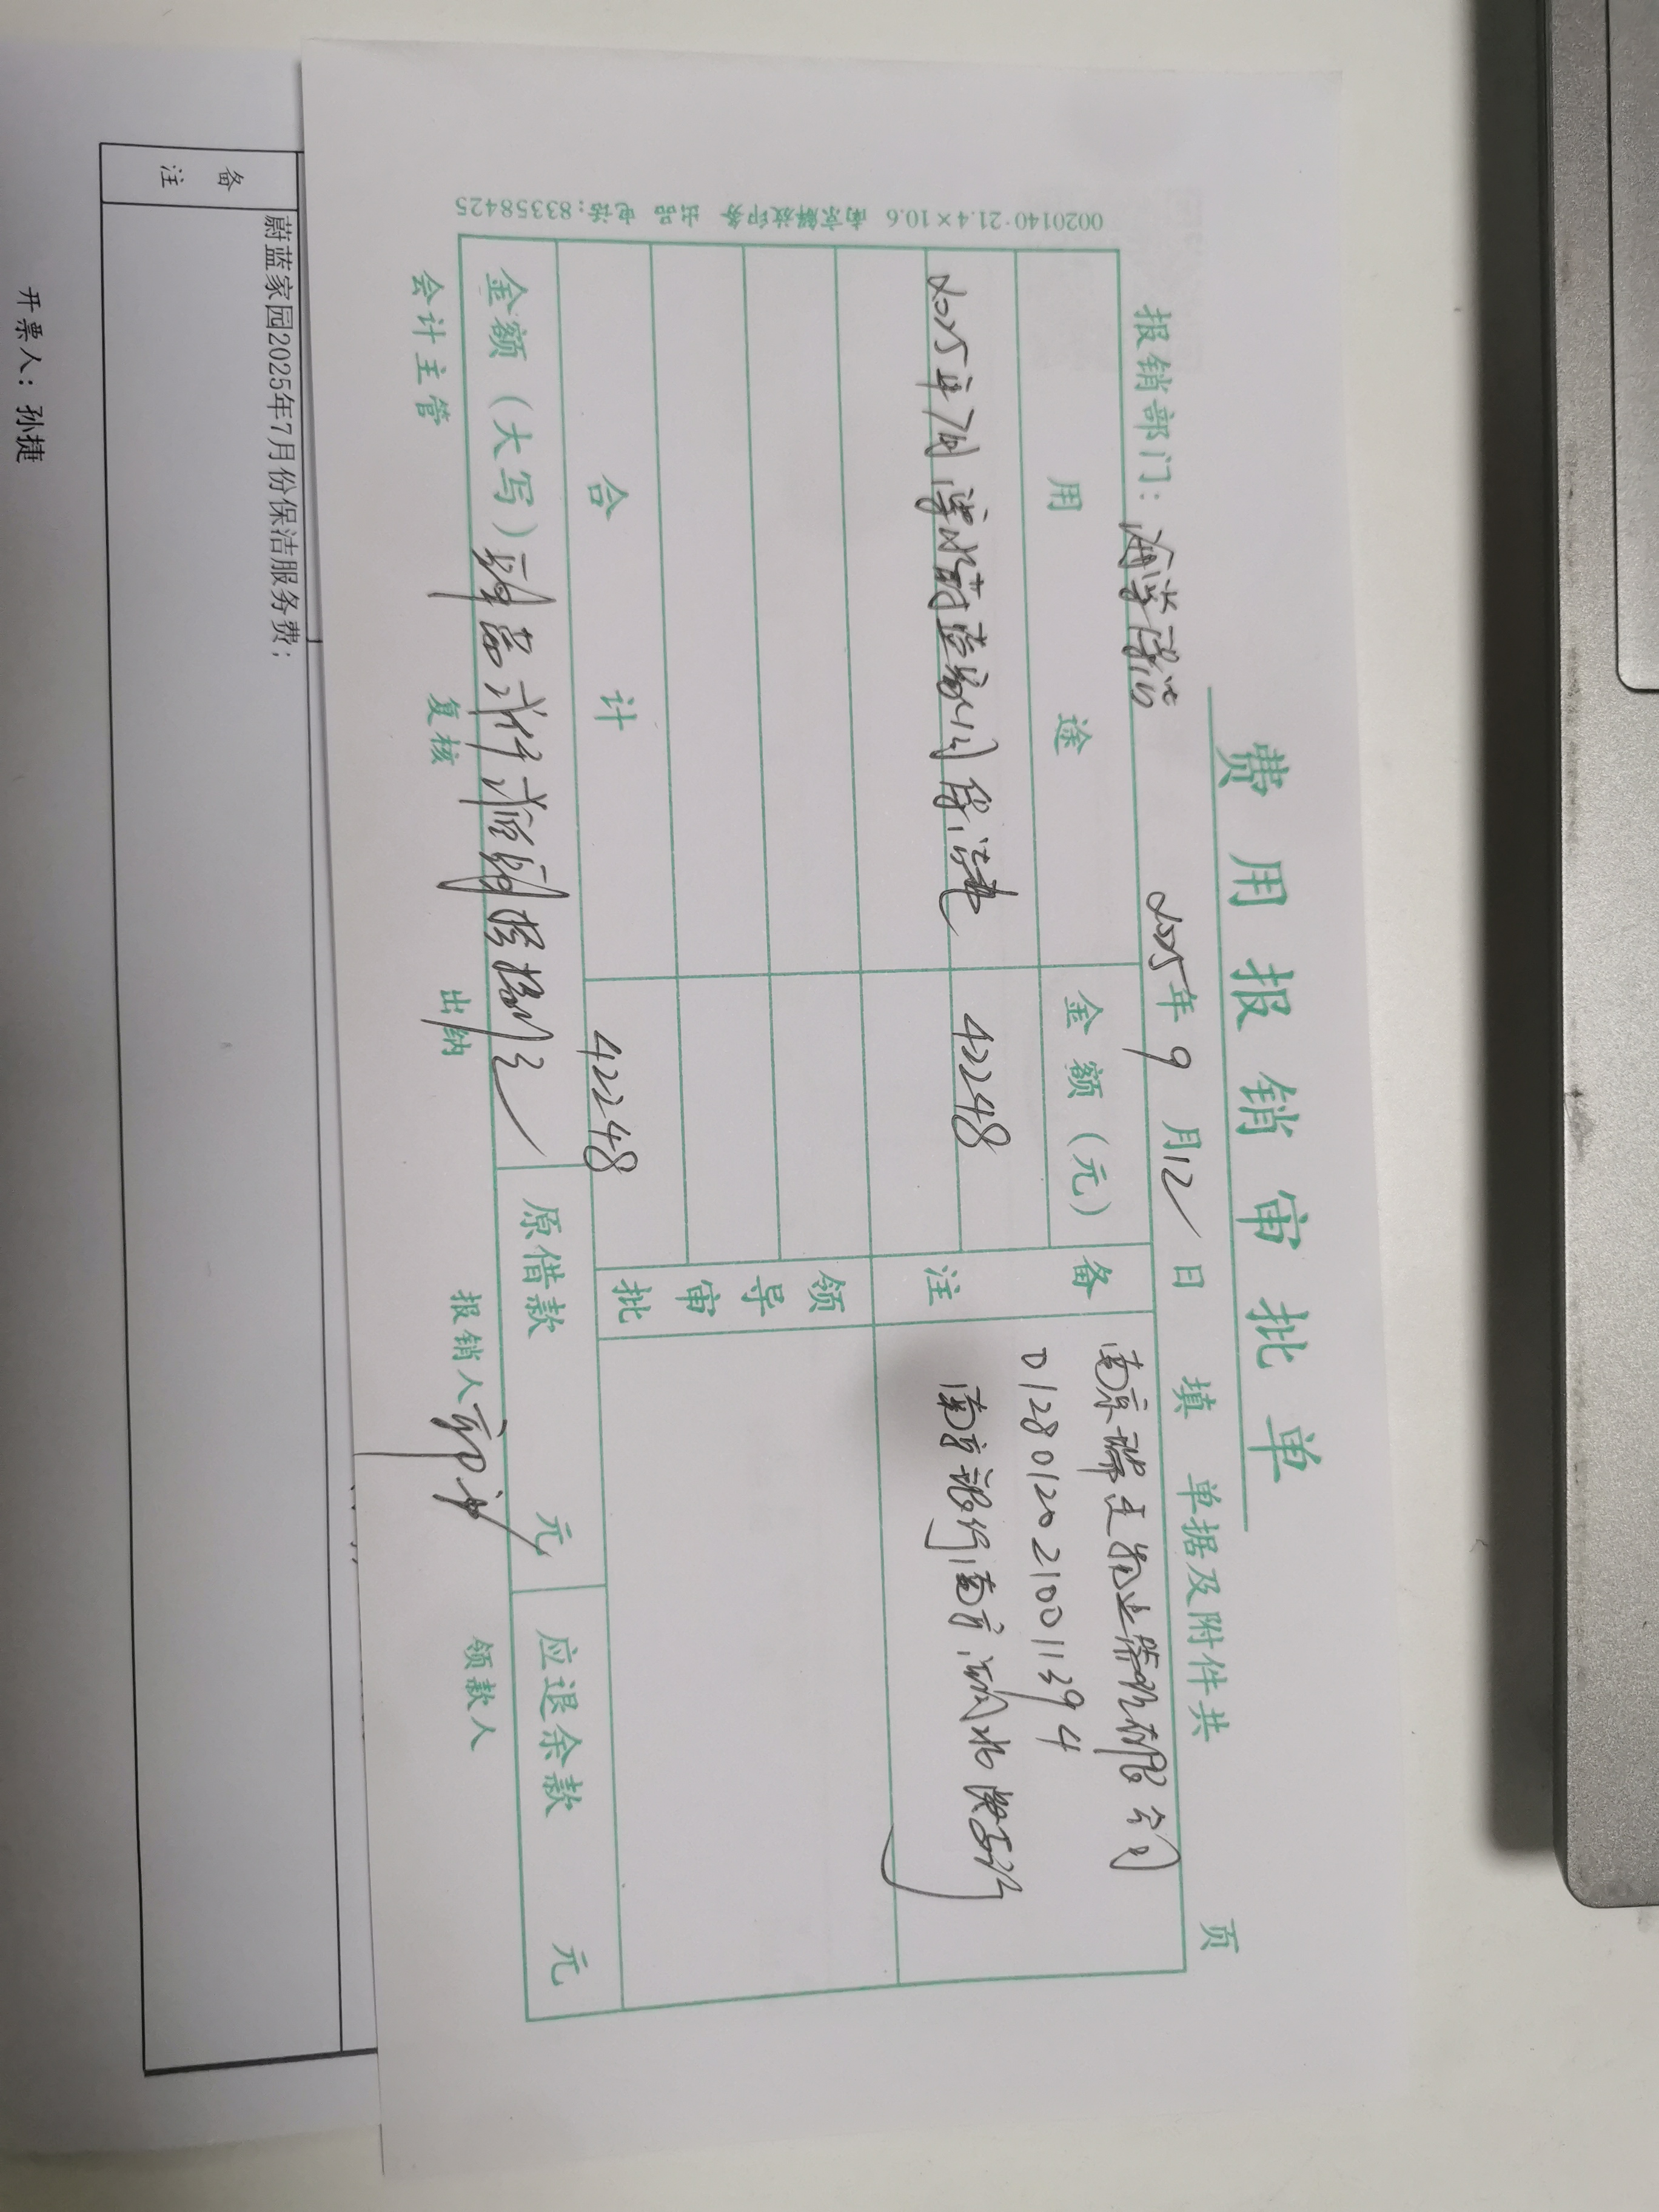 费用报销审批单
报销部门：海学保洁 2025年9月12日 填 单据及附件共 页
用途 金额（元） 备注
南京瑞建物业管理有限公司
0128012021001394
2025年7月 蔚蓝家园保洁 42248
南京银行南京城北支行
领导审批
合计 42248
金额（大写）肆万贰仟贰佰肆拾捌元 原借款 元 应退余款 元
会计主管 复核 出纳 报销人 领款人
0020140·21.4×10.6 南京解放印务 出品 电话：83358425
备注
蔚蓝家园2025年7月份保洁服务费；
开票人：孙捷